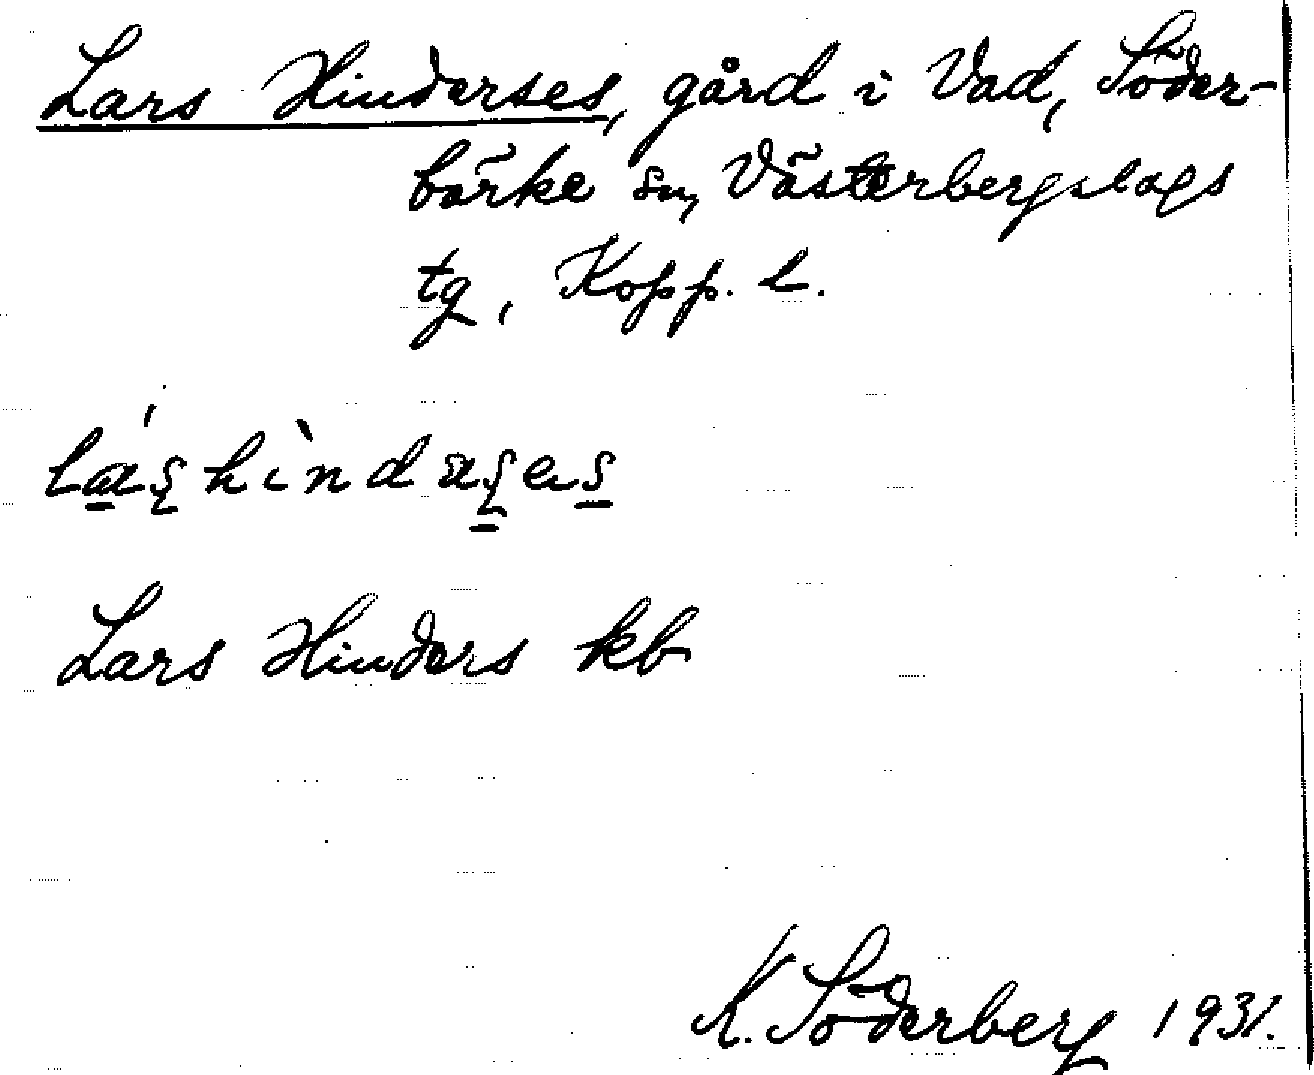 Lars Hinderses, gård i Vad, Söder-
bärke sn, Västerbergslags
tg, Kopp. l.
Lars Hinders kb
K. Söderberg 1931.